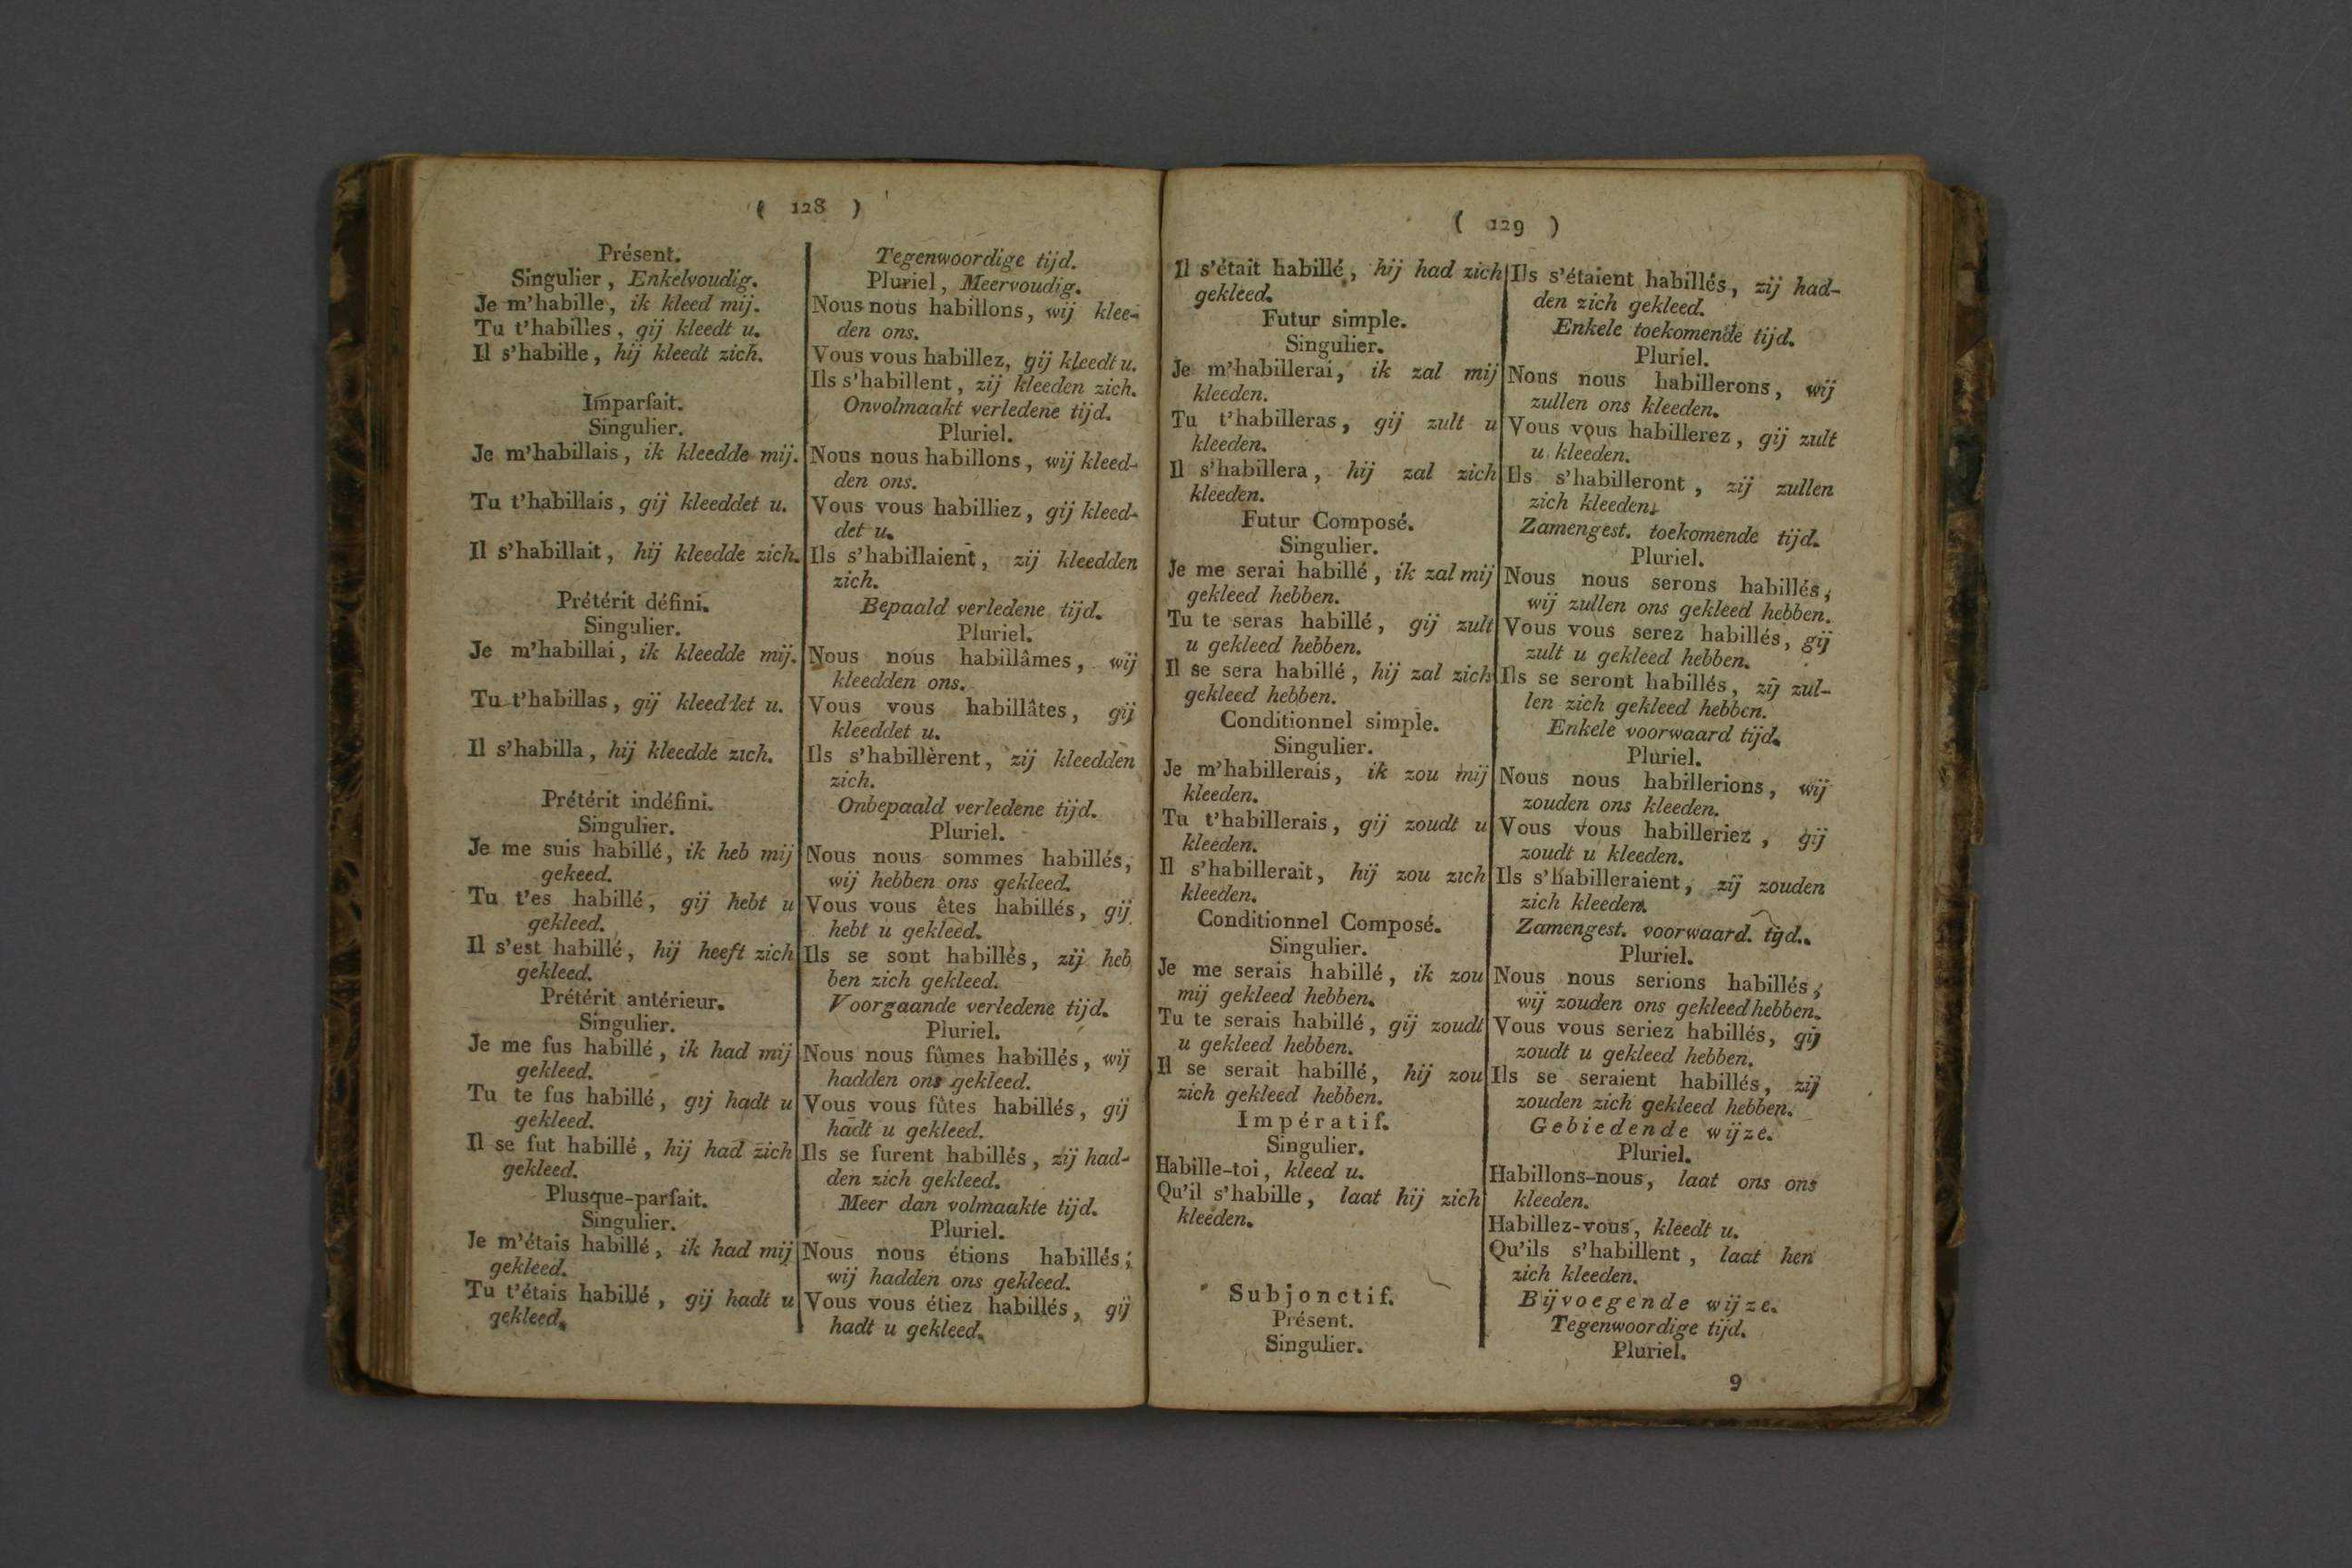 ( 128 )
Présent.
Singulier, Enkelvoudig.
Je m'habille, ik kleed mij.
Tu t'habilles, gij kleedt u.
Il s'habille, hij kleedt zich.
Imparfait.
Singulier.
Je m'habillais, ik kleedde mij.
Tu t'habillais, gij kleeddet u.
Il s'habillait, hij kleedde zich.
Prétérit défini.
Singulier.
Je m'habillai, ik kleedde mij.
Tu t'habillas, gij kleeddet u.
Il s'habilla, hij kleedde zich.
Prétérit indéfini.
Singulier.
Je me suis habillé, ik heb mij
gekeed.
Tu t'es habillé, gij hebt u
gekleed.
Il s'est habillé, hij heeft zich
gekleed.
Prétérit antérieur.
Singulier.
Je me fus habillé, ik had mij
gekleed.
Tu te fus habillé, gij hadt u
gekleed.
Il se fut habillé, hij had zich
gekleed.
Plusque-parfait.
Singulier.
Je m'étais habillé, ik had mij
gekleed.
Tu t'étais habillé, gij hadt u
gekleed.
Tegenwoordige tijd.
Pluriel, Meervoudig.
Nous nous habillons, wij klee-
den ons.
Vous vous habillez, gij kleedt u.
Ils s'habillent, zij kleeden zich.
Onvolmaakt verledene tijd.
Pluriel.
Nous nous habillons, wij kleed-
den ons.
Vous vous habilliez, gij kleed-
det u.
Ils s'habillaient, zij kleedden
zich.
Bepaald verledene tijd.
Pluriel.
Nous nous habillâmes, wij
kleedden ons.
Vous vous habillâtes, gij
kleeddet u.
Ils s'habillèrent, zij kleedden
zich.
Onbepaald verledene tijd.
Pluriel.
Nous nous sommes habillés,
wij hebben ons gekleed.
Vous vous êtes habillés, gij
hebt u gekleed.
Ils se sont habillés, zij heb
ben zich gekleed.
Voorgaande verledene tijd.
Pluriel.
Nous nous fûmes habillés, wij
hadden ons gekleed.
Vous vous fûtes habillés, gij
hadt u gekleed.
Ils se furent habillés, zij had-
den zich gekleed.
Meer dan volmaakte tijd.
Pluriel.
Nous nous étions habillés;
wij hadden ons gekleed.
Vous vous étiez habillés, gij
hadt u gekleed.
( 129 )
Il s'était habillé, hij had zich
gekleed.
Futur simple.
Singulier.
Je m'habillerai, ik zal mij
kleeden.
Tu t'habilleras, gij zult u
kleeden.
Il s'habillera, hij zal zich
kleeden.
Futur Composé.
Singulier.
Je me serai habillé, ik zal mij
gekleed hebben.
Tu te seras habillé, gij zult
u gekleed hebben.
Il se sera habillé, hij zal zich
gekleed hebben.
Conditionnel simple.
Singulier.
Je m'habillerais, ik zou mij
kleeden.
Tu t'habillerais, gij zoudt u
kleeden.
Il s'habillerait, hij zou zich
kleeden.
Conditionnel Composé.
Singulier.
Je me serais habillé, ik zou
mij gekleed hebben.
Tu te serais habillé, gij zoudt
u gekleed hebben.
Il se serait habillé, hij zou
zich gekleed hebben.
Impératif.
Singulier.
Habille-toi, kleed u.
Qu'il s'habille, laat hij zich
kleeden.
Subjonctif.
Présent.
Singulier.
Ils s'étaient habillés, zij had-
den zich gekleed.
Enkele toekomende tijd.
Pluriel.
Nous nous habillerons, wij
zullen ons kleeden.
Vous vous habillerez, gij zult
u kleeden.
Ils s'habilleront, zij zullen
zich kleeden.
Zamengest. toekomende tijd.
Pluriel.
Nous nous serons habillés,
wij zullen ons gekleed hebben.
Vous vous serez habillés, gij
zult u gekleed hebben.
Ils se seront habillés, zij zul-
len zich gekleed hebben.
Enkele voorwaard tijd.
Pluriel.
Nous nous habillerions, wij
zouden ons kleeden.
Vous vous habilleriez, gij
zoudt u kleeden.
Ils s'habilleraient, zij zouden
zich kleeden.
Zamengest. voorwaard. tijd.
Pluriel.
Nous nous serions habillés,
wij zouden ons gekleed hebben.
Vous vous seriez habillés, gij
zoudt u gekleed hebben.
Ils se seraient habillés, zij
zouden zich gekleed hebben.
Gebiedende wijze.
Pluriel.
Habillons-nous, laat ons ons
kleeden.
Habillez-vous, kleedt u.
Qu'ils s'habillent, laat hen
zich kleeden.
Bijvoegende wijze.
Tegenwoordige tijd.
Pluriel.
9